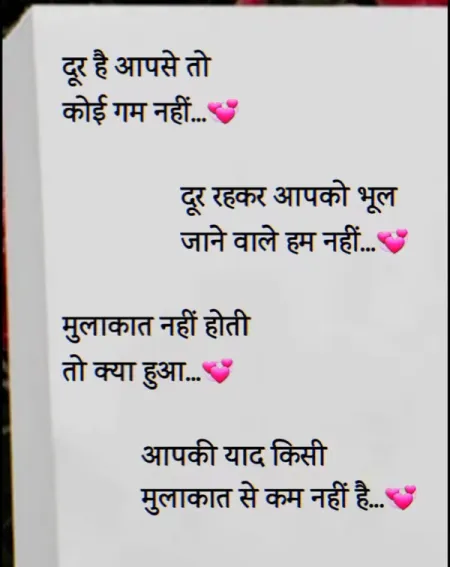 दूर है आपसे तो
कोई गम नहीं...💞
दूर रहकर आपको भूल
जाने वाले हम नहीं...💞
मुलाकात नहीं होती
तो क्या हुआ...💞
आपकी याद किसी
मुलाकात से कम नहीं है...💞